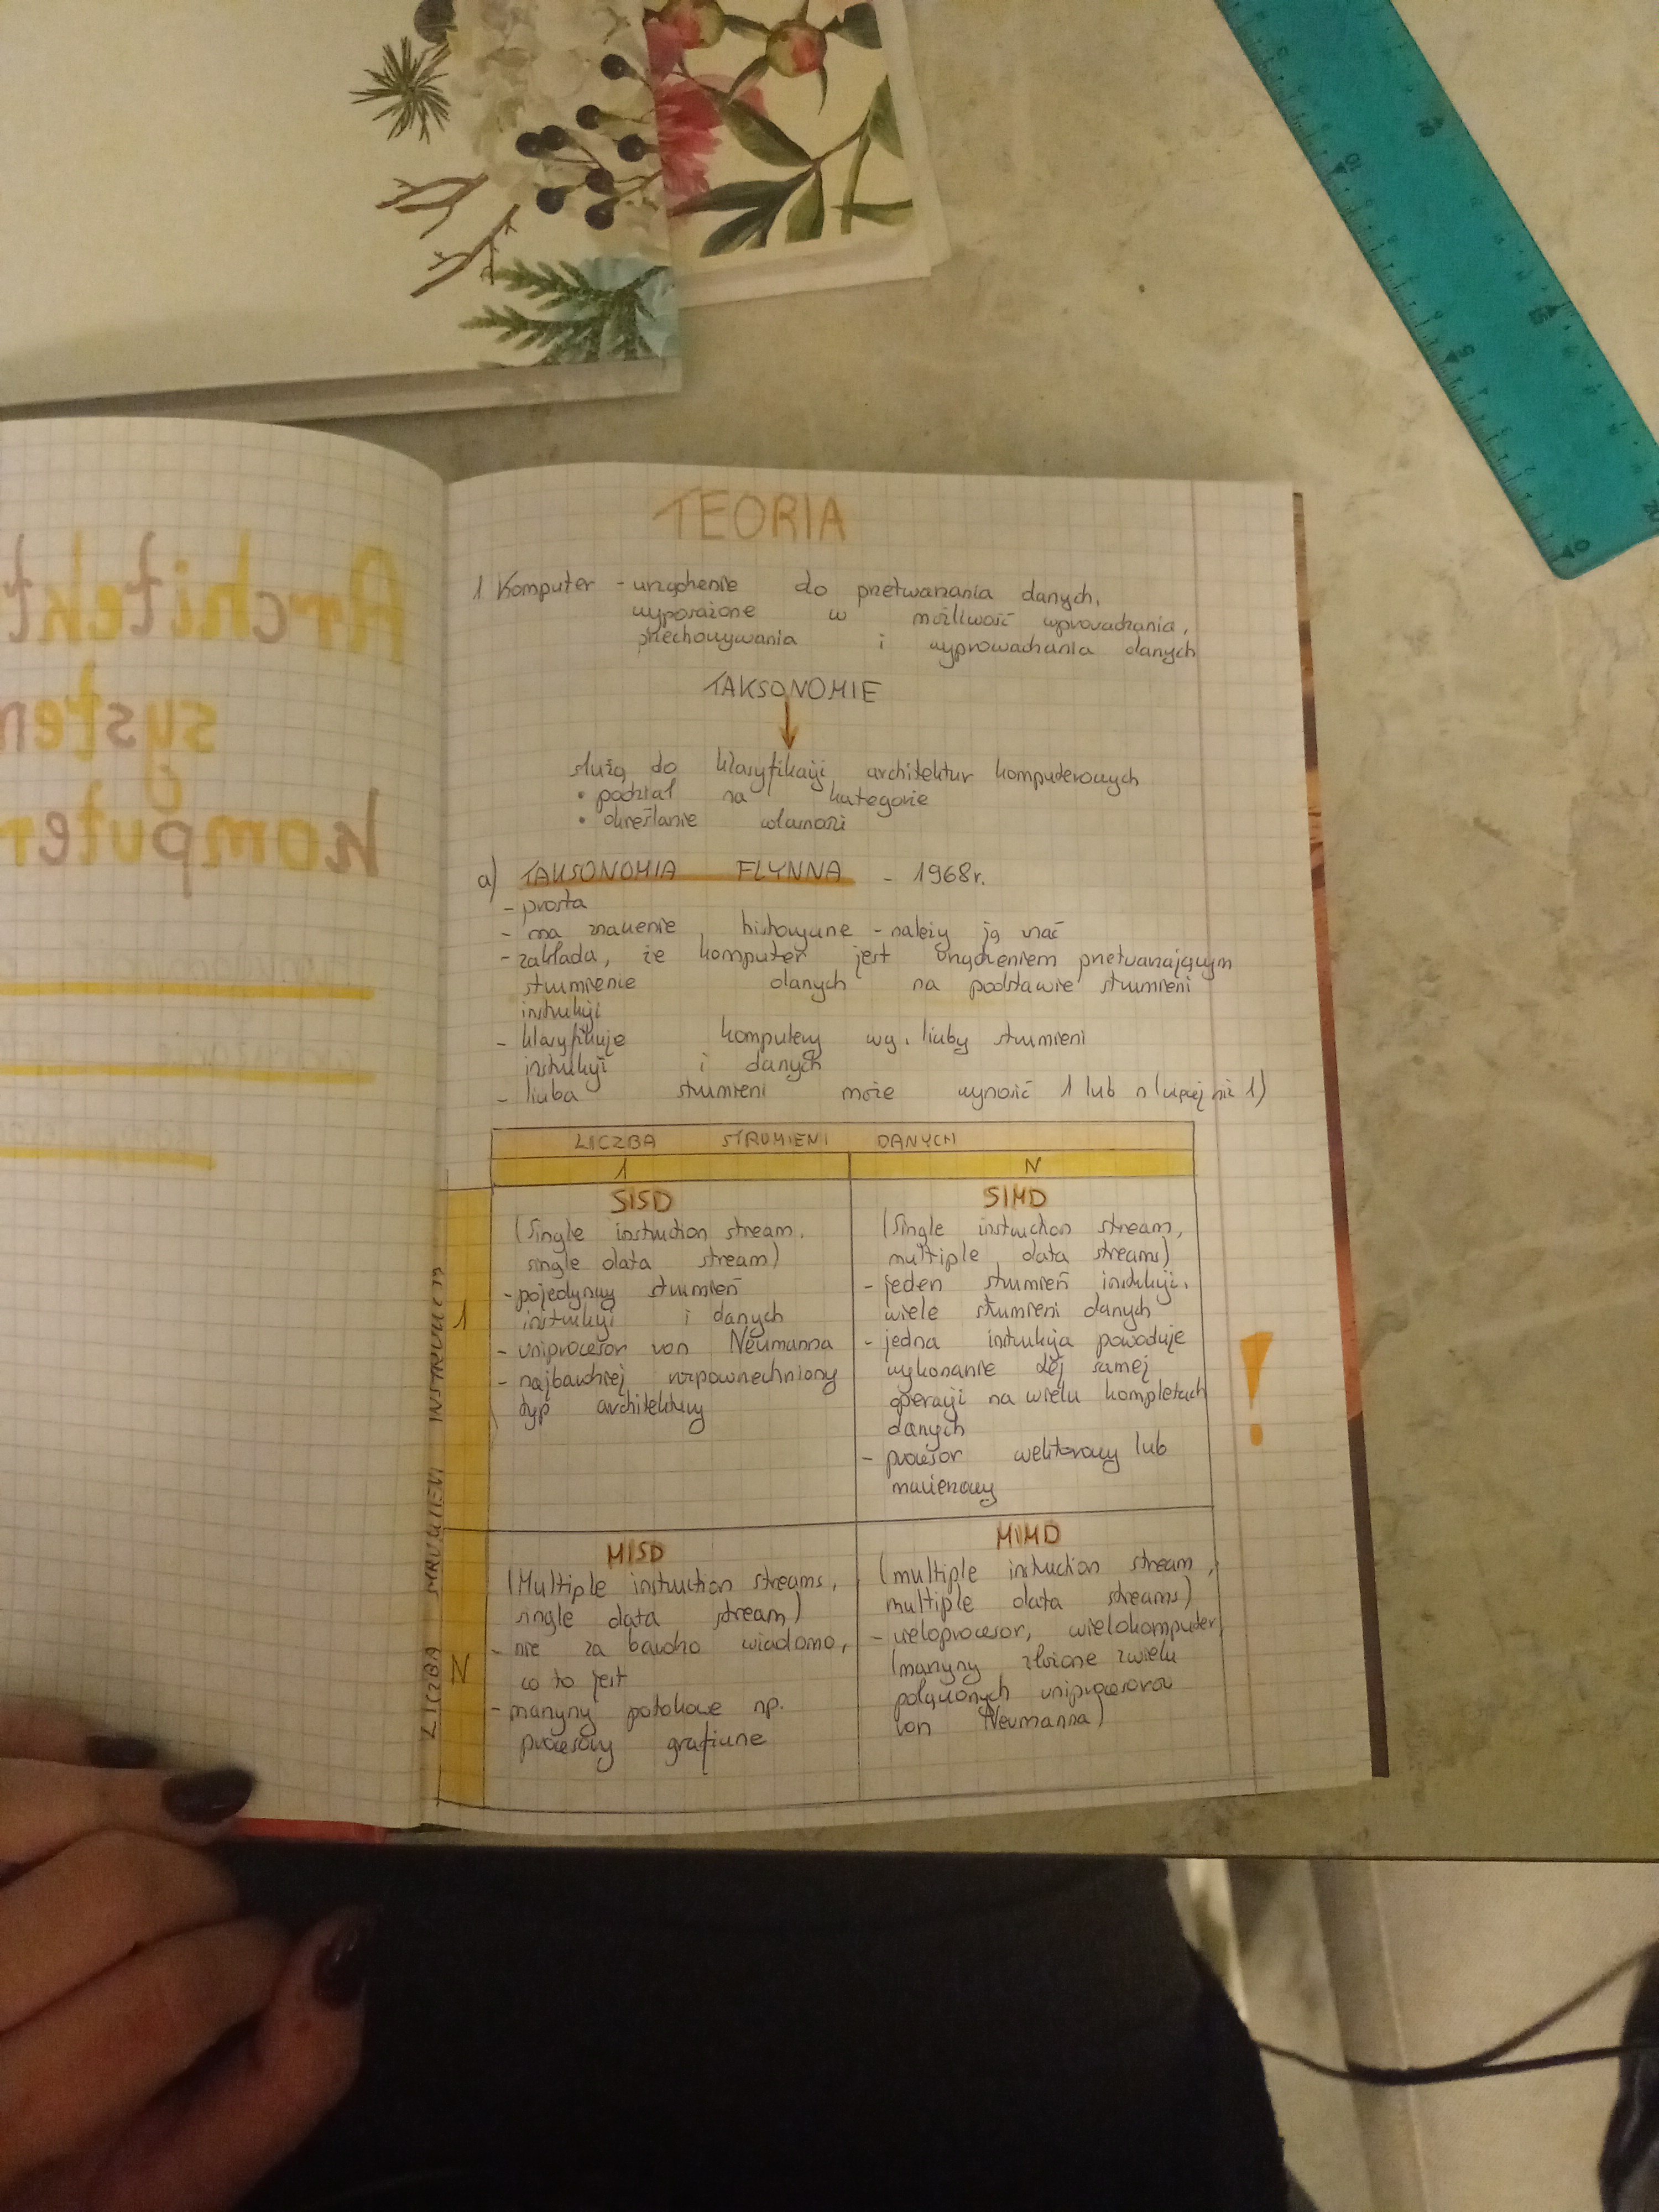 TEORIA
1 Komputer - urządzenie do przetwarzania danych,
wyposażone w możliwość wprowadzania,
przechowywania i wyprowadzania danych
TAKSONOMIE
służą do klasyfikacji architektur komputerowych
• podział na kategorie
• określanie własności
a) TAKSONOMIA FLYNNA - 1968r.
- prosta
- ma znaczenie historyczne - należy ją znać
- zakłada, że komputer jest urządzeniem przetwarzającym
strumienie danych na podstawie strumieni
instrukcji
- klasyfikuje komputery wg. liczby strumieni
instrukcji i danych
- liczba strumieni może wynosić 1 lub n (więcej niż 1)
LICZBA STRUMIENI DANYCH
1 N
LICZBA STRUMIENI INSTRUKCJI
1
SISD
(Single instruction stream,
single data stream)
- pojedynczy strumień
instrukcji i danych
- uniprocesor von Neumanna
- najbardziej rozpowszechniony
typ architektury
SIMD
(Single instruction stream,
multiple data streams)
- jeden strumień instrukcji,
wiele strumieni danych
- jedna instrukcja powoduje
wykonanie tej samej
operacji na wielu kompletach
danych
- procesor wektorowy lub
macierzowy
!
N
MISD
(Multiple instruction streams,
single data stream)
- nie za bardzo wiadomo,
co to jest
- maszyny potokowe np.
procesory graficzne
MIMD
(multiple instruction stream,
multiple data streams)
- wieloprocesor, wielokomputer
(maszyny złożone z wielu
połączonych uniprocesorów
von Neumanna)
Architekt
system
komputer